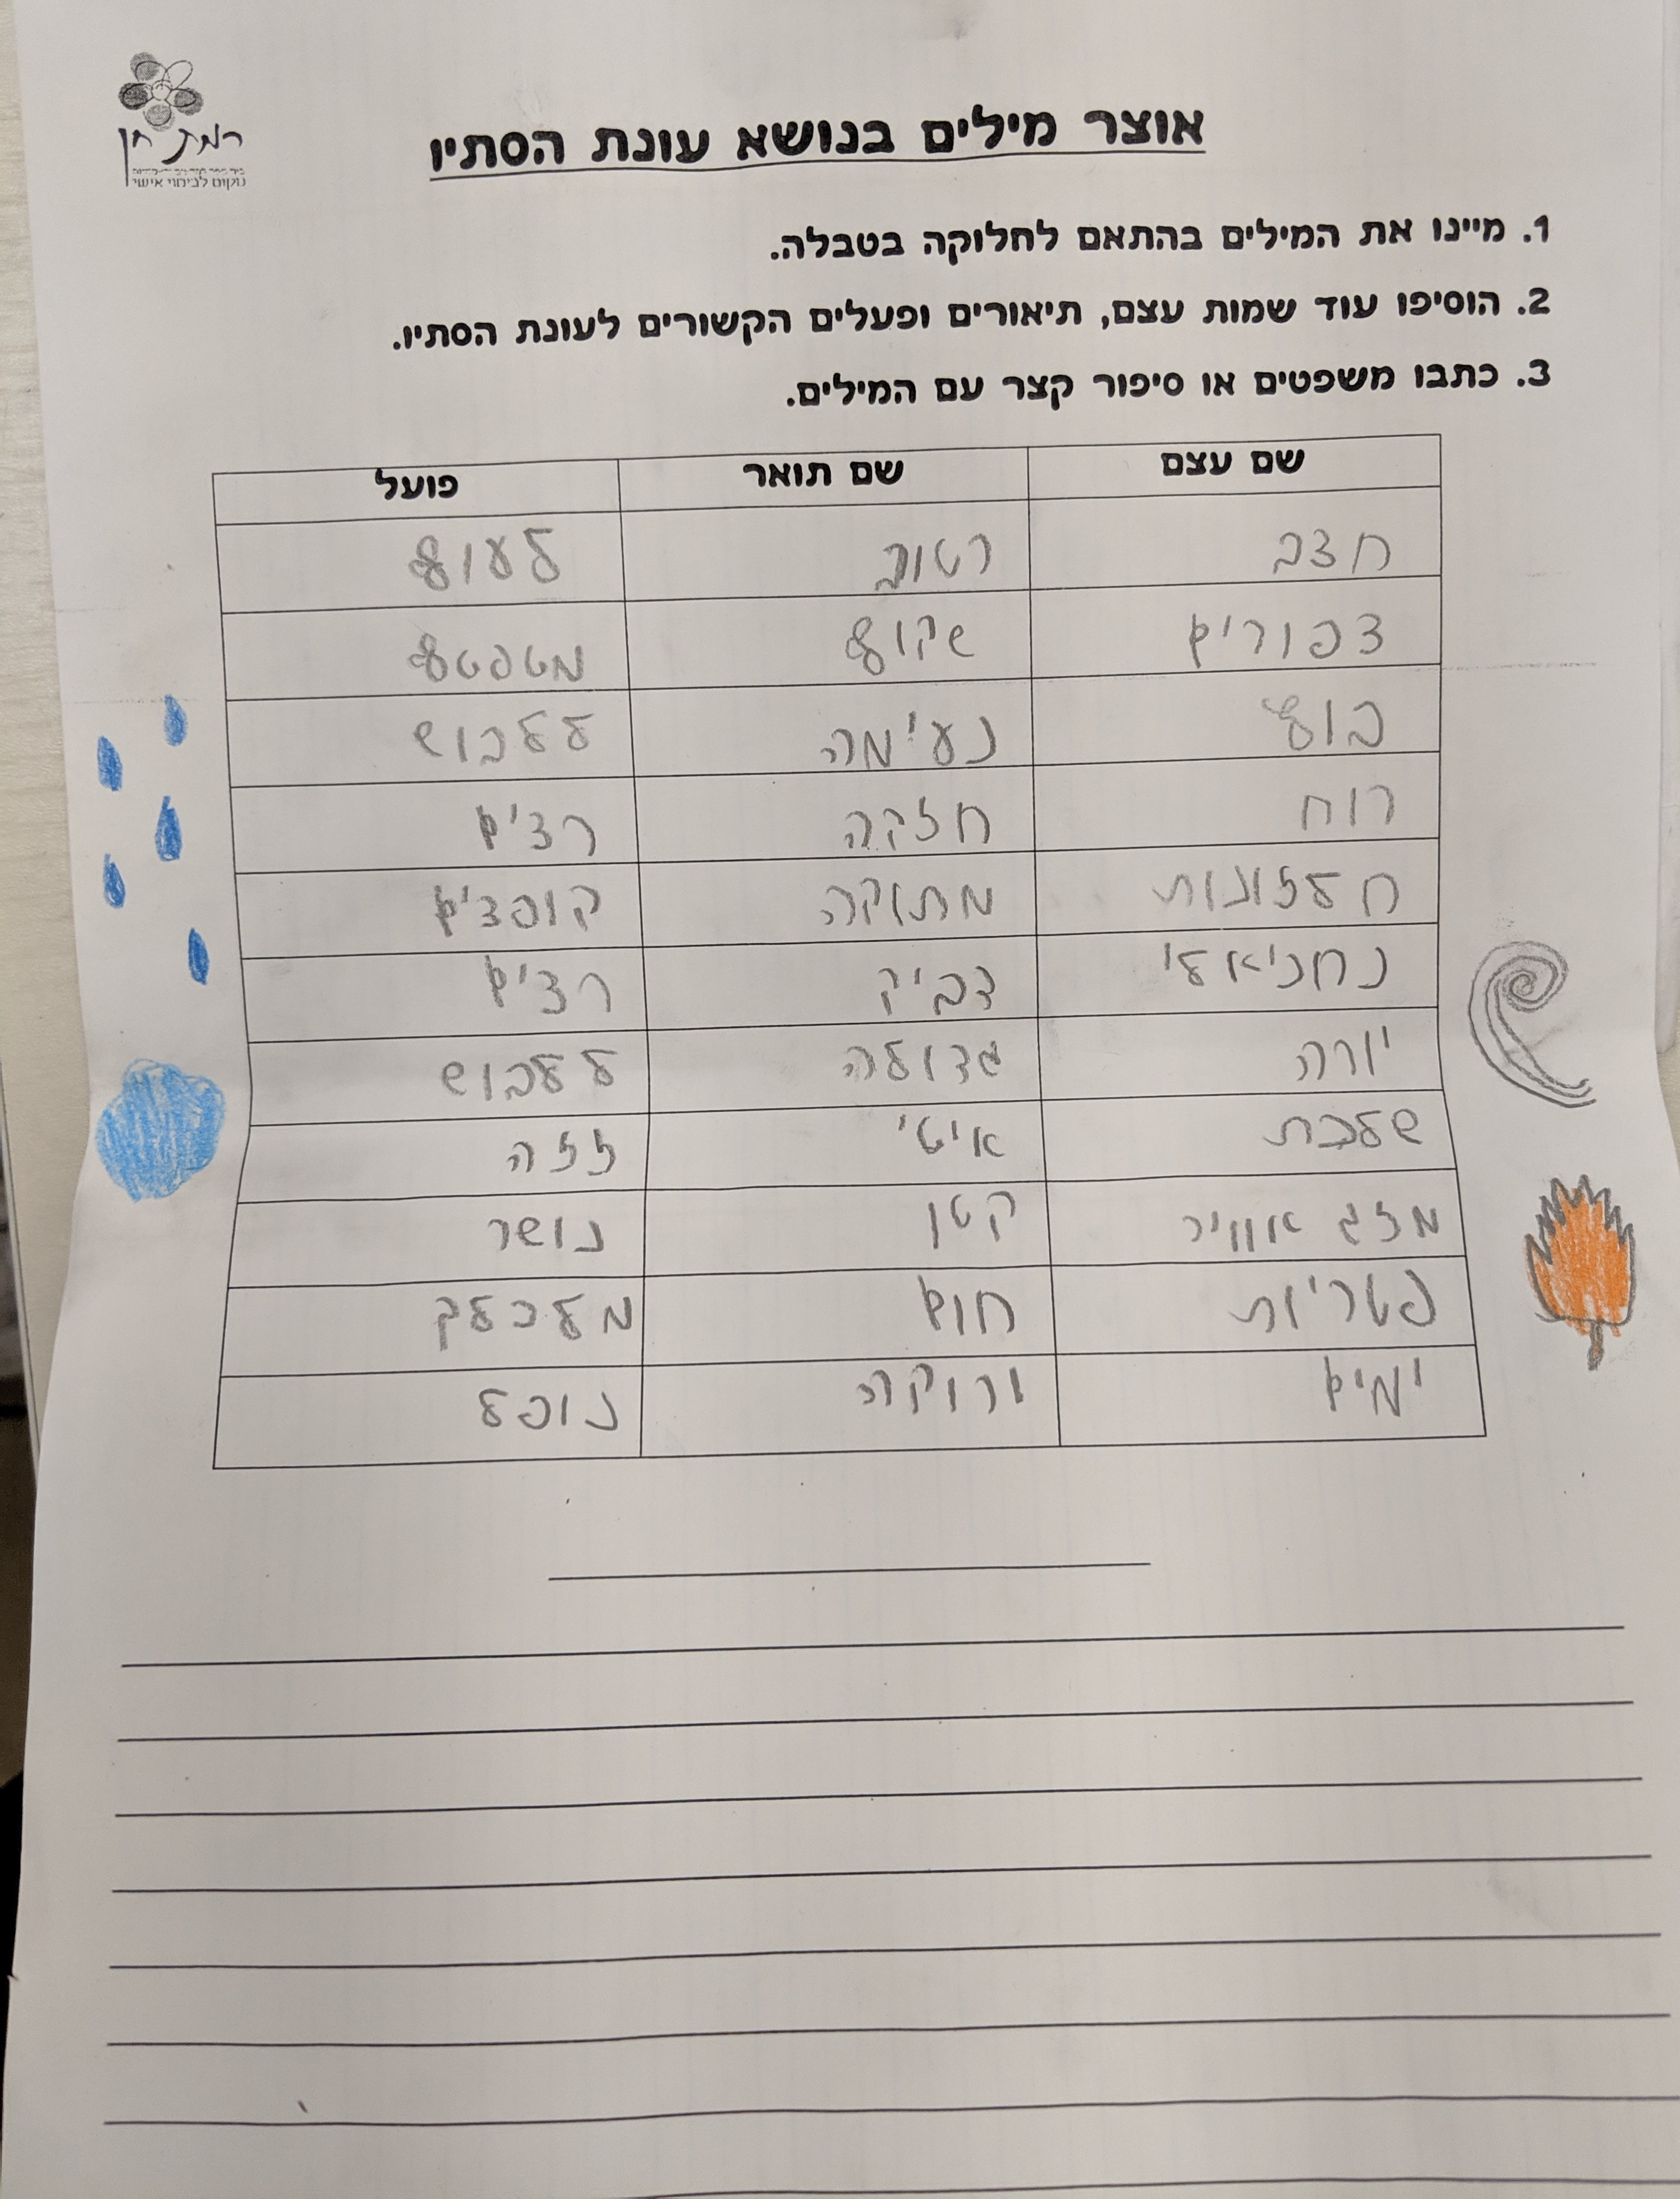 רמת חן
מקום לביטוי אישי
אוצר מילים בנושא עונת הסתיו
1. מיינו את המילים בהתאם לחלוקה בטבלה.
2. הוסיפו עוד שמות עצם, תיאורים ופעלים הקשורים לעונת הסתיו.
3. כתבו משפטים או סיפור קצר עם המילים.
שם עצם שם תואר פועל
חצב רטוב לעוף
צפורים שקוף מטפטף
בוץ נעימה ללבוש
רוח חזקה רצים
חלזונות מתוקה קופצים
נחניאלי דביק רצים
יורה גדולה ללבוש
שלכת איטי זזה
מזג אוויר קטן נושר
פטריות חום מלכלך
ימים ורוקה נופל